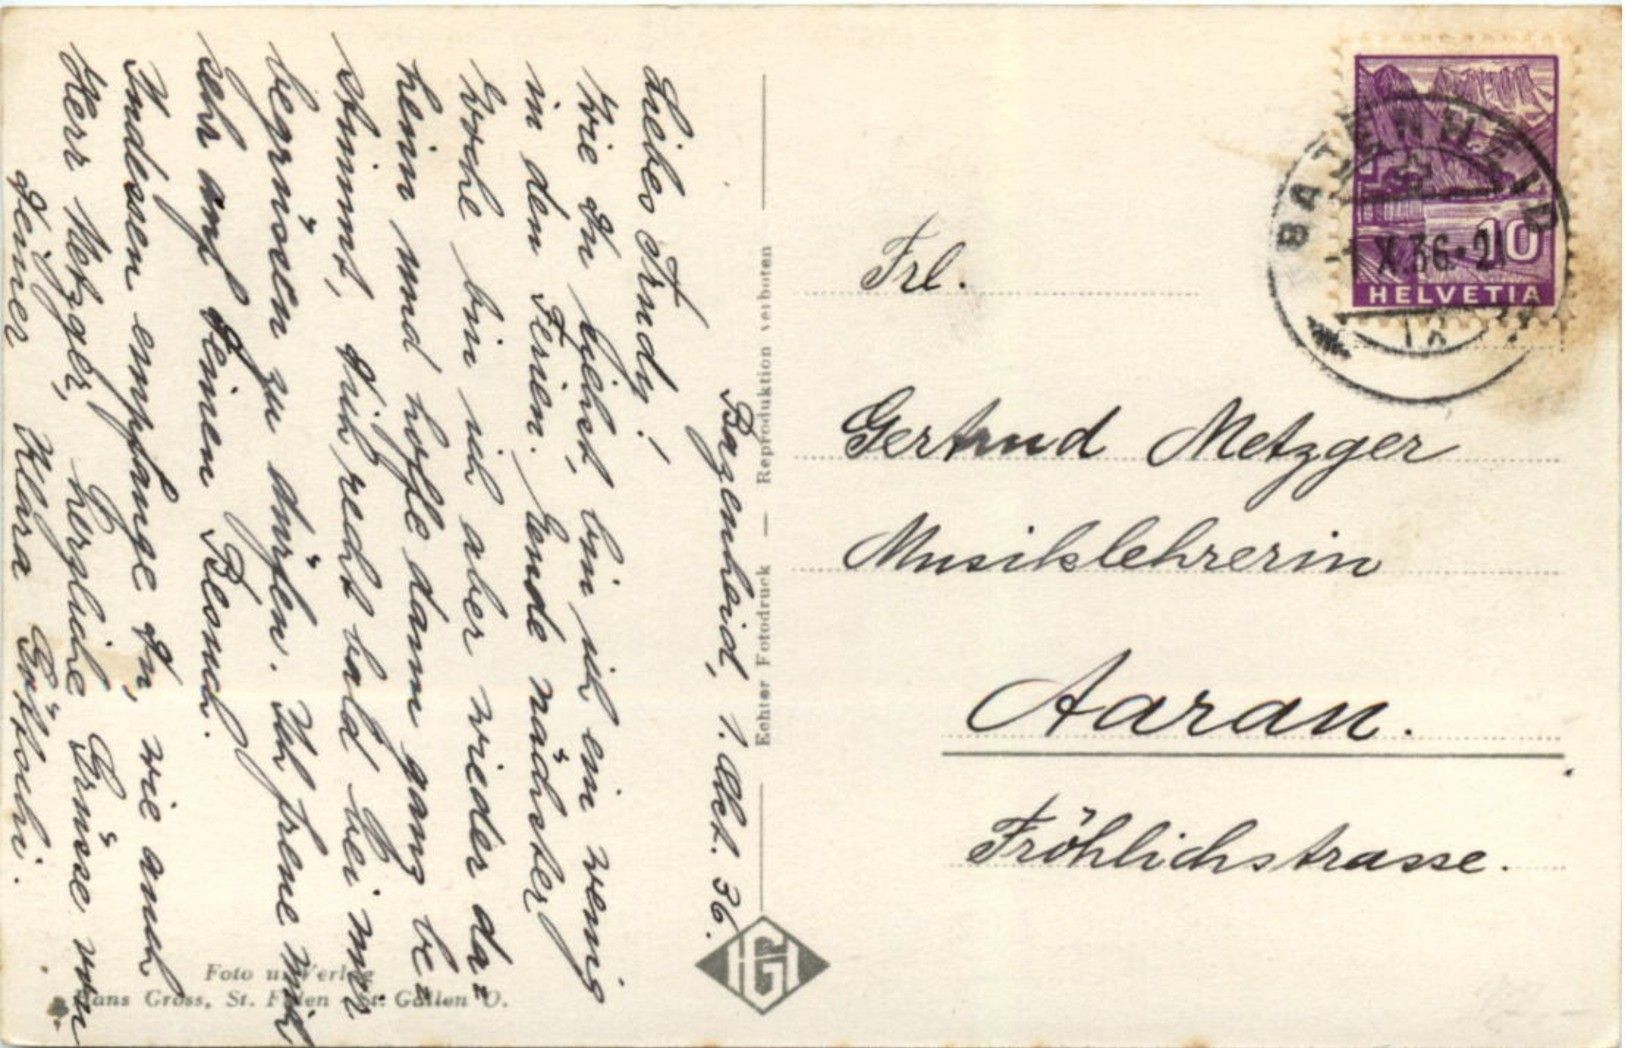 Bazenheid, 1. Okt. 36.
Liebes Trudy!
Wie Du siehst, bin ich ein wenig
in den Ferien. Ende nächster
Woche bin ich aber wieder da=
heim und hoffe dann ganz be=
stimmt, Dich recht bald bei mir
begrüssen zu dürfen. Ich freue mich
sehr auf Deinen Besuch.
Indessen empfange Du, wie auch
Herr Metzger, herzliche Grüsse von
Deiner Klara
Echter Fotodruck — Reproduktion verboten
Foto u. Verlag
Hans Gross, St. Fiden - St. Gallen O.
HG
Frl.
Gertrud Metzger
Musiklehrerin
Aarau.
Fröhlichstrasse.
BAZENHEID
X.36-21
10
HELVETIA